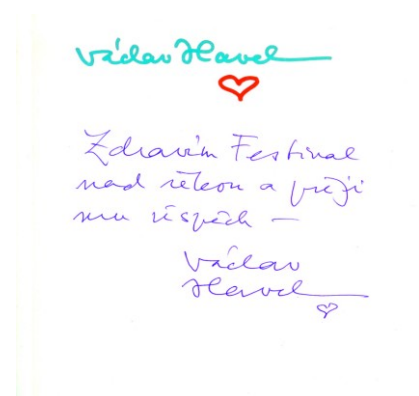 Václav Havel
Zdravím Festival
nad řekou a přeji
mu úspěch —
Václav
Havel